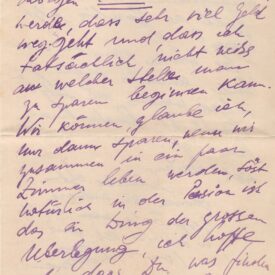 werde, dass sehr viel Geld
weg geht und, dass ich
tatsächlich nicht weiss
an welcher Stelle man
zu sparen beginnen kann.
Wir können, glaube ich,
nur dann sparen, wenn wir
zusammen in ein paar
Zimmer leben werden, sonst
natürlich in der Pension ist
das ein Ding der grossen
Überlegung, ich hoffe
dass Du was finden